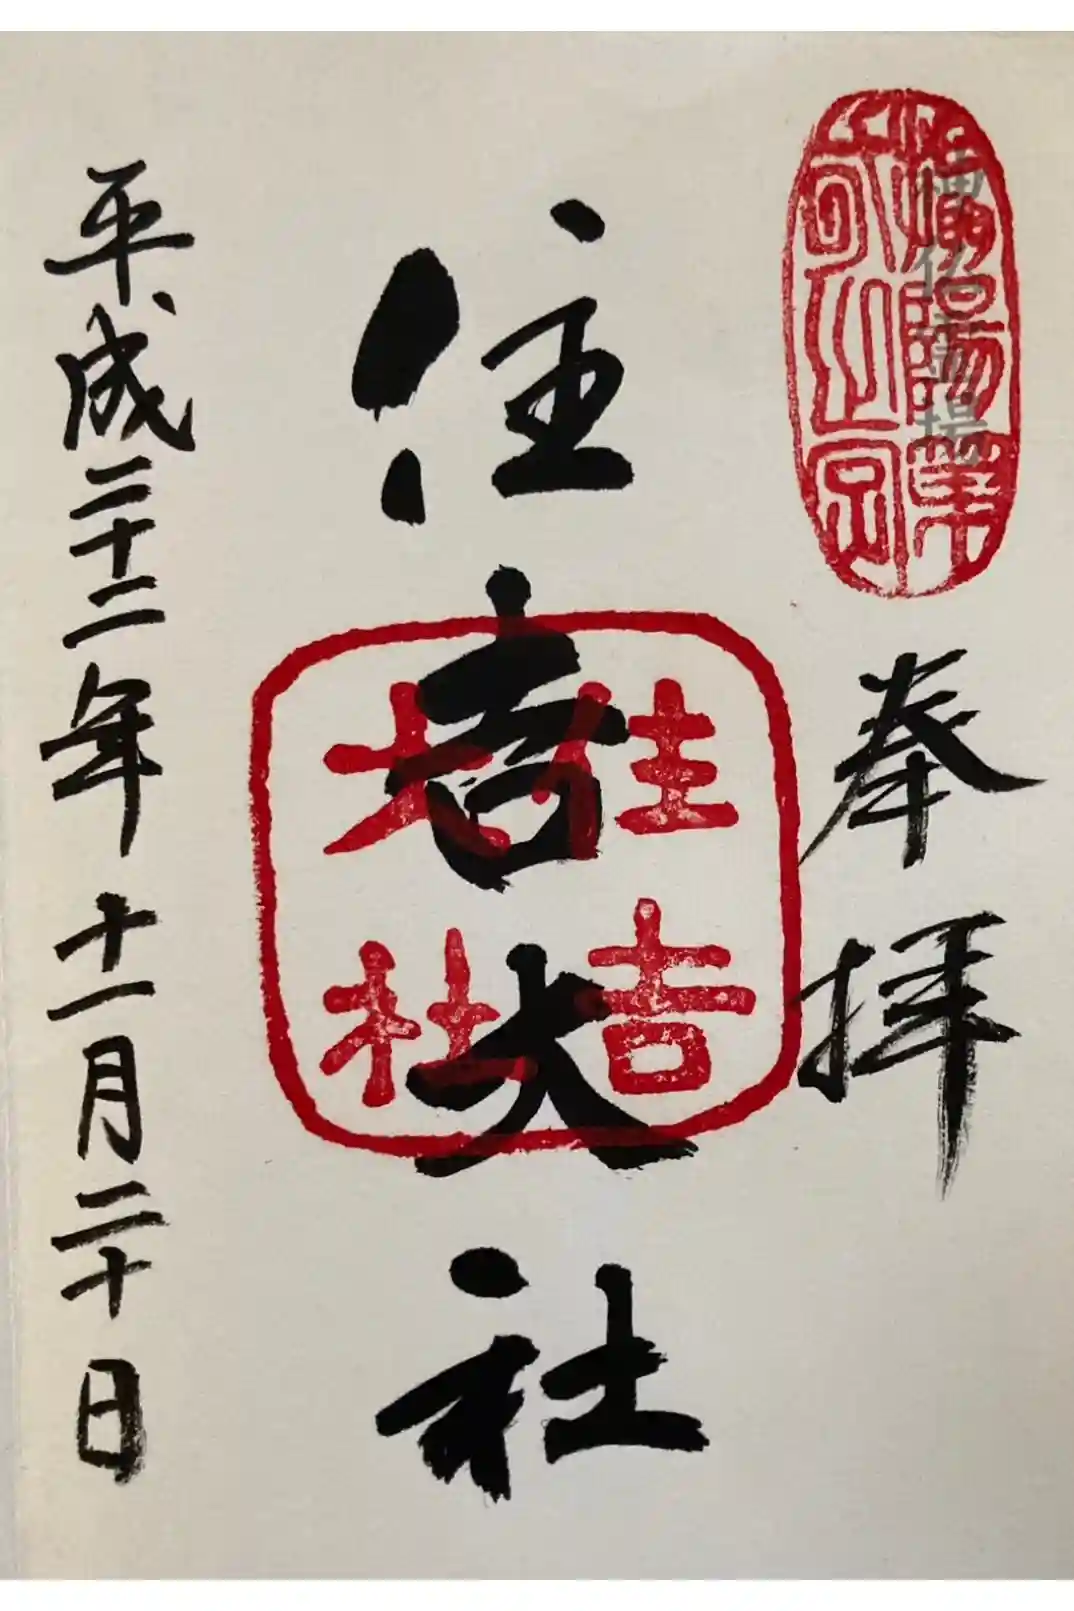 奉拝
住吉大社
住吉
大社
平成二十二年十一月二十日